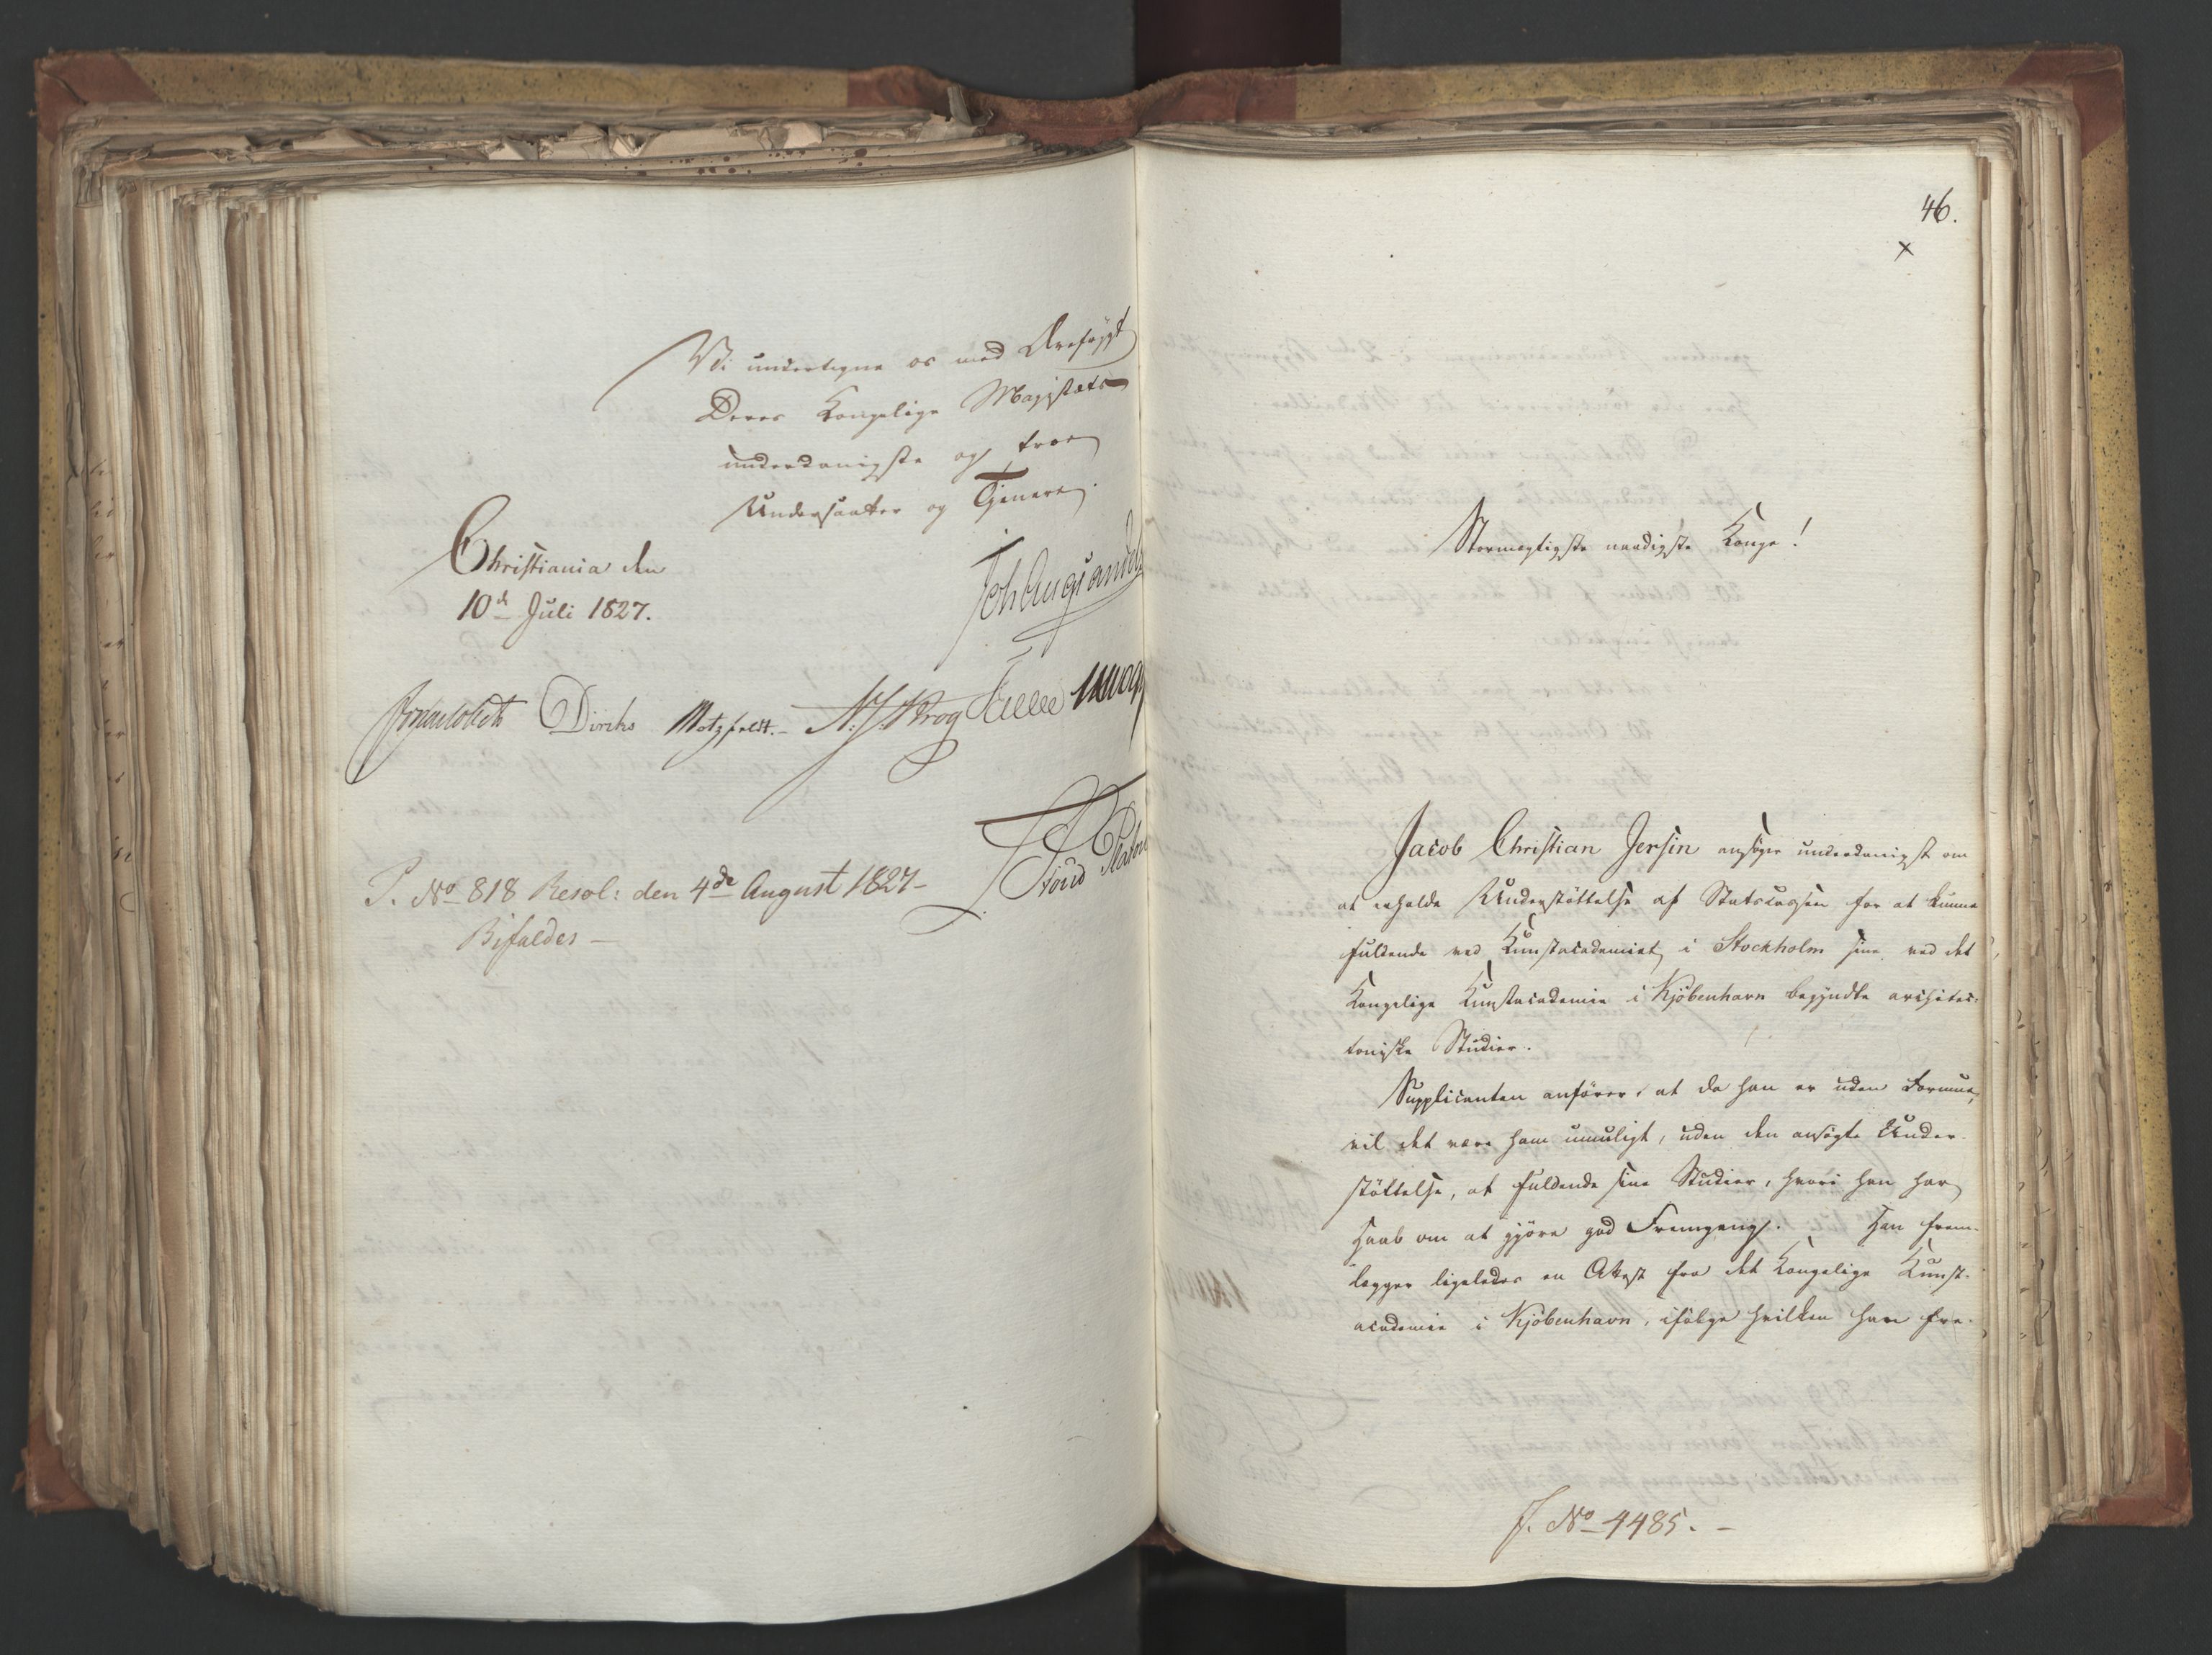 Vi undertegne os med Ærefrygt
Deres Kongelige Majestæts
underdanigste og troe
Undersaatter og Tjenere.
Christiania den
10de Juli 1827.
Joh Aug Sandels
Diriks Motzfeldt. N. J. Krog Collett
P. No 818 Resol: den 4de August 1827-
Bifaldes -
46.
x
Stormægtigste naadigste Konge!
Jacob Christian Jersin ansøger underdanigst om
at erholde Understöttelse af Statscassen for at kunne
fuldende ved Kunstacademiet i Stockholm sine ved det
Kongelige Kunstacademie i Kjöbenhavn begyndte architec-
toniske Studier.
Supplicanten anfører, at da han er uden Formue,
vil det være ham umuligt, uden den ansøgte Under-
stöttelse, at fuldende sine Studier, hvori han har
Haab om at gjöre god Fremgang. Han frem-
lægger ligeledes en Attest fra det Kongelige Kunst-
academie i Kjöbenhavn, ifölge hvilken han fre-
J. No 4485. -